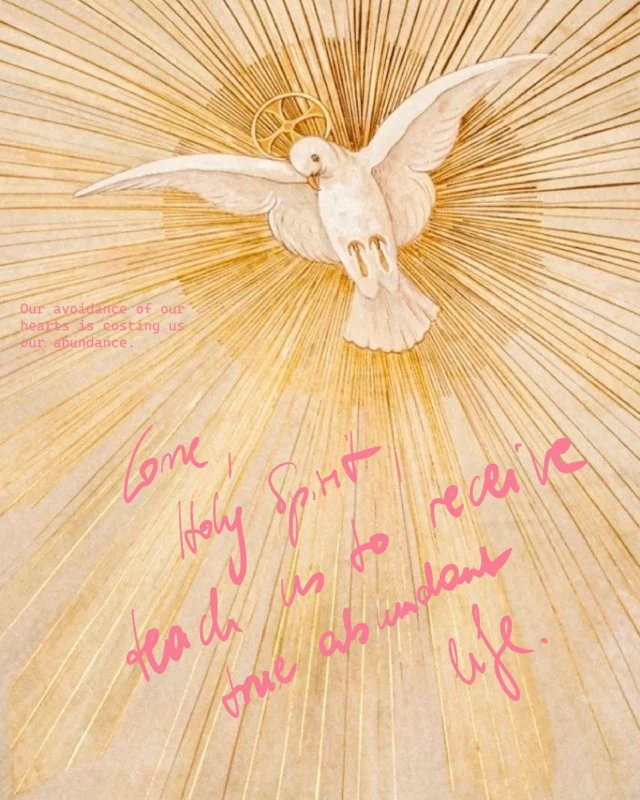 Our avoidance of our
hearts is costing us
our abundance.
Come,
Holy Spirit,
teach us to receive
true abundant
life.